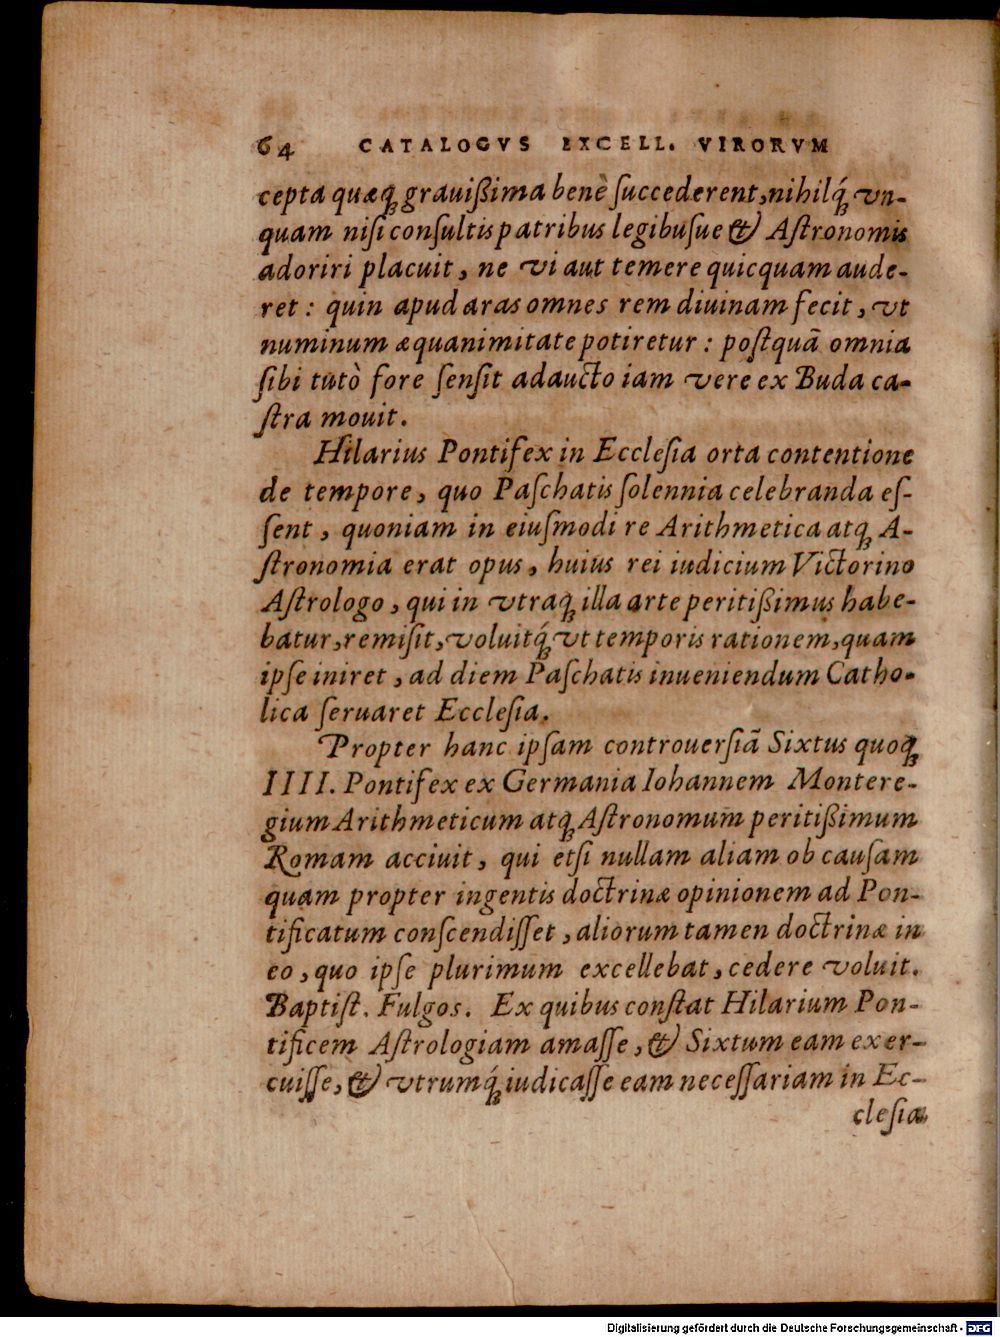 64 CATALOGVS EXCELL. VIRORVM
cepta quæq́ꝫ grauißima benè ſuccederent, nihilq́ꝫ vn-
quam niſi conſultis patribus legibuſue & Aſtronomis
adoriri placuit, ne vi aut temere quicquam aude-
ret: quin apud aras omnes rem diuinam fecit, vt
numinum æquanimitate potiretur: poſtquã omnia
ſibi tutò fore ſenſit adaucto iam vere ex Buda ca-
ſtra mouit.
Hilarius Pontifex in Eccleſia orta contentione
de tempore, quo Paſchatis ſolennia celebranda eſ-
ſent, quoniam in eiuſmodi re Arithmetica atqꝫ A-
ſtronomia erat opus, huius rei iudicium Victorino
Aſtrologo, qui in vtraqꝫ illa arte peritißimus habe-
batur, remiſit, voluitq́ꝫ vt temporis rationem, quam
ipſe iniret, ad diem Paſchatis inueniendum Catho-
lica ſeruaret Eccleſia.
Propter hanc ipſam controuerſiã Sixtus quoqꝫ
IIII. Pontifex ex Germania Iohannem Montere-
gium Arithmeticum atqꝫ Aſtronomum peritißimum
Romam acciuit, qui etſi nullam aliam ob cauſam
quam propter ingentis doctrinæ opinionem ad Pon-
tificatum conſcendiſſet, aliorum tamen doctrinæ in
eo, quo ipſe plurimum excellebat, cedere voluit.
Baptiſt. Fulgos. Ex quibus conſtat Hilarium Pon-
tificem Aſtrologiam amaſſe, & Sixtum eam exer-
cuiſſe, & vtrumq́ꝫ iudicaſſe eam neceſſariam in Ec-
cleſia
Digitalisierung gefördert durch die Deutsche Forschungsgemeinschaft - DFG